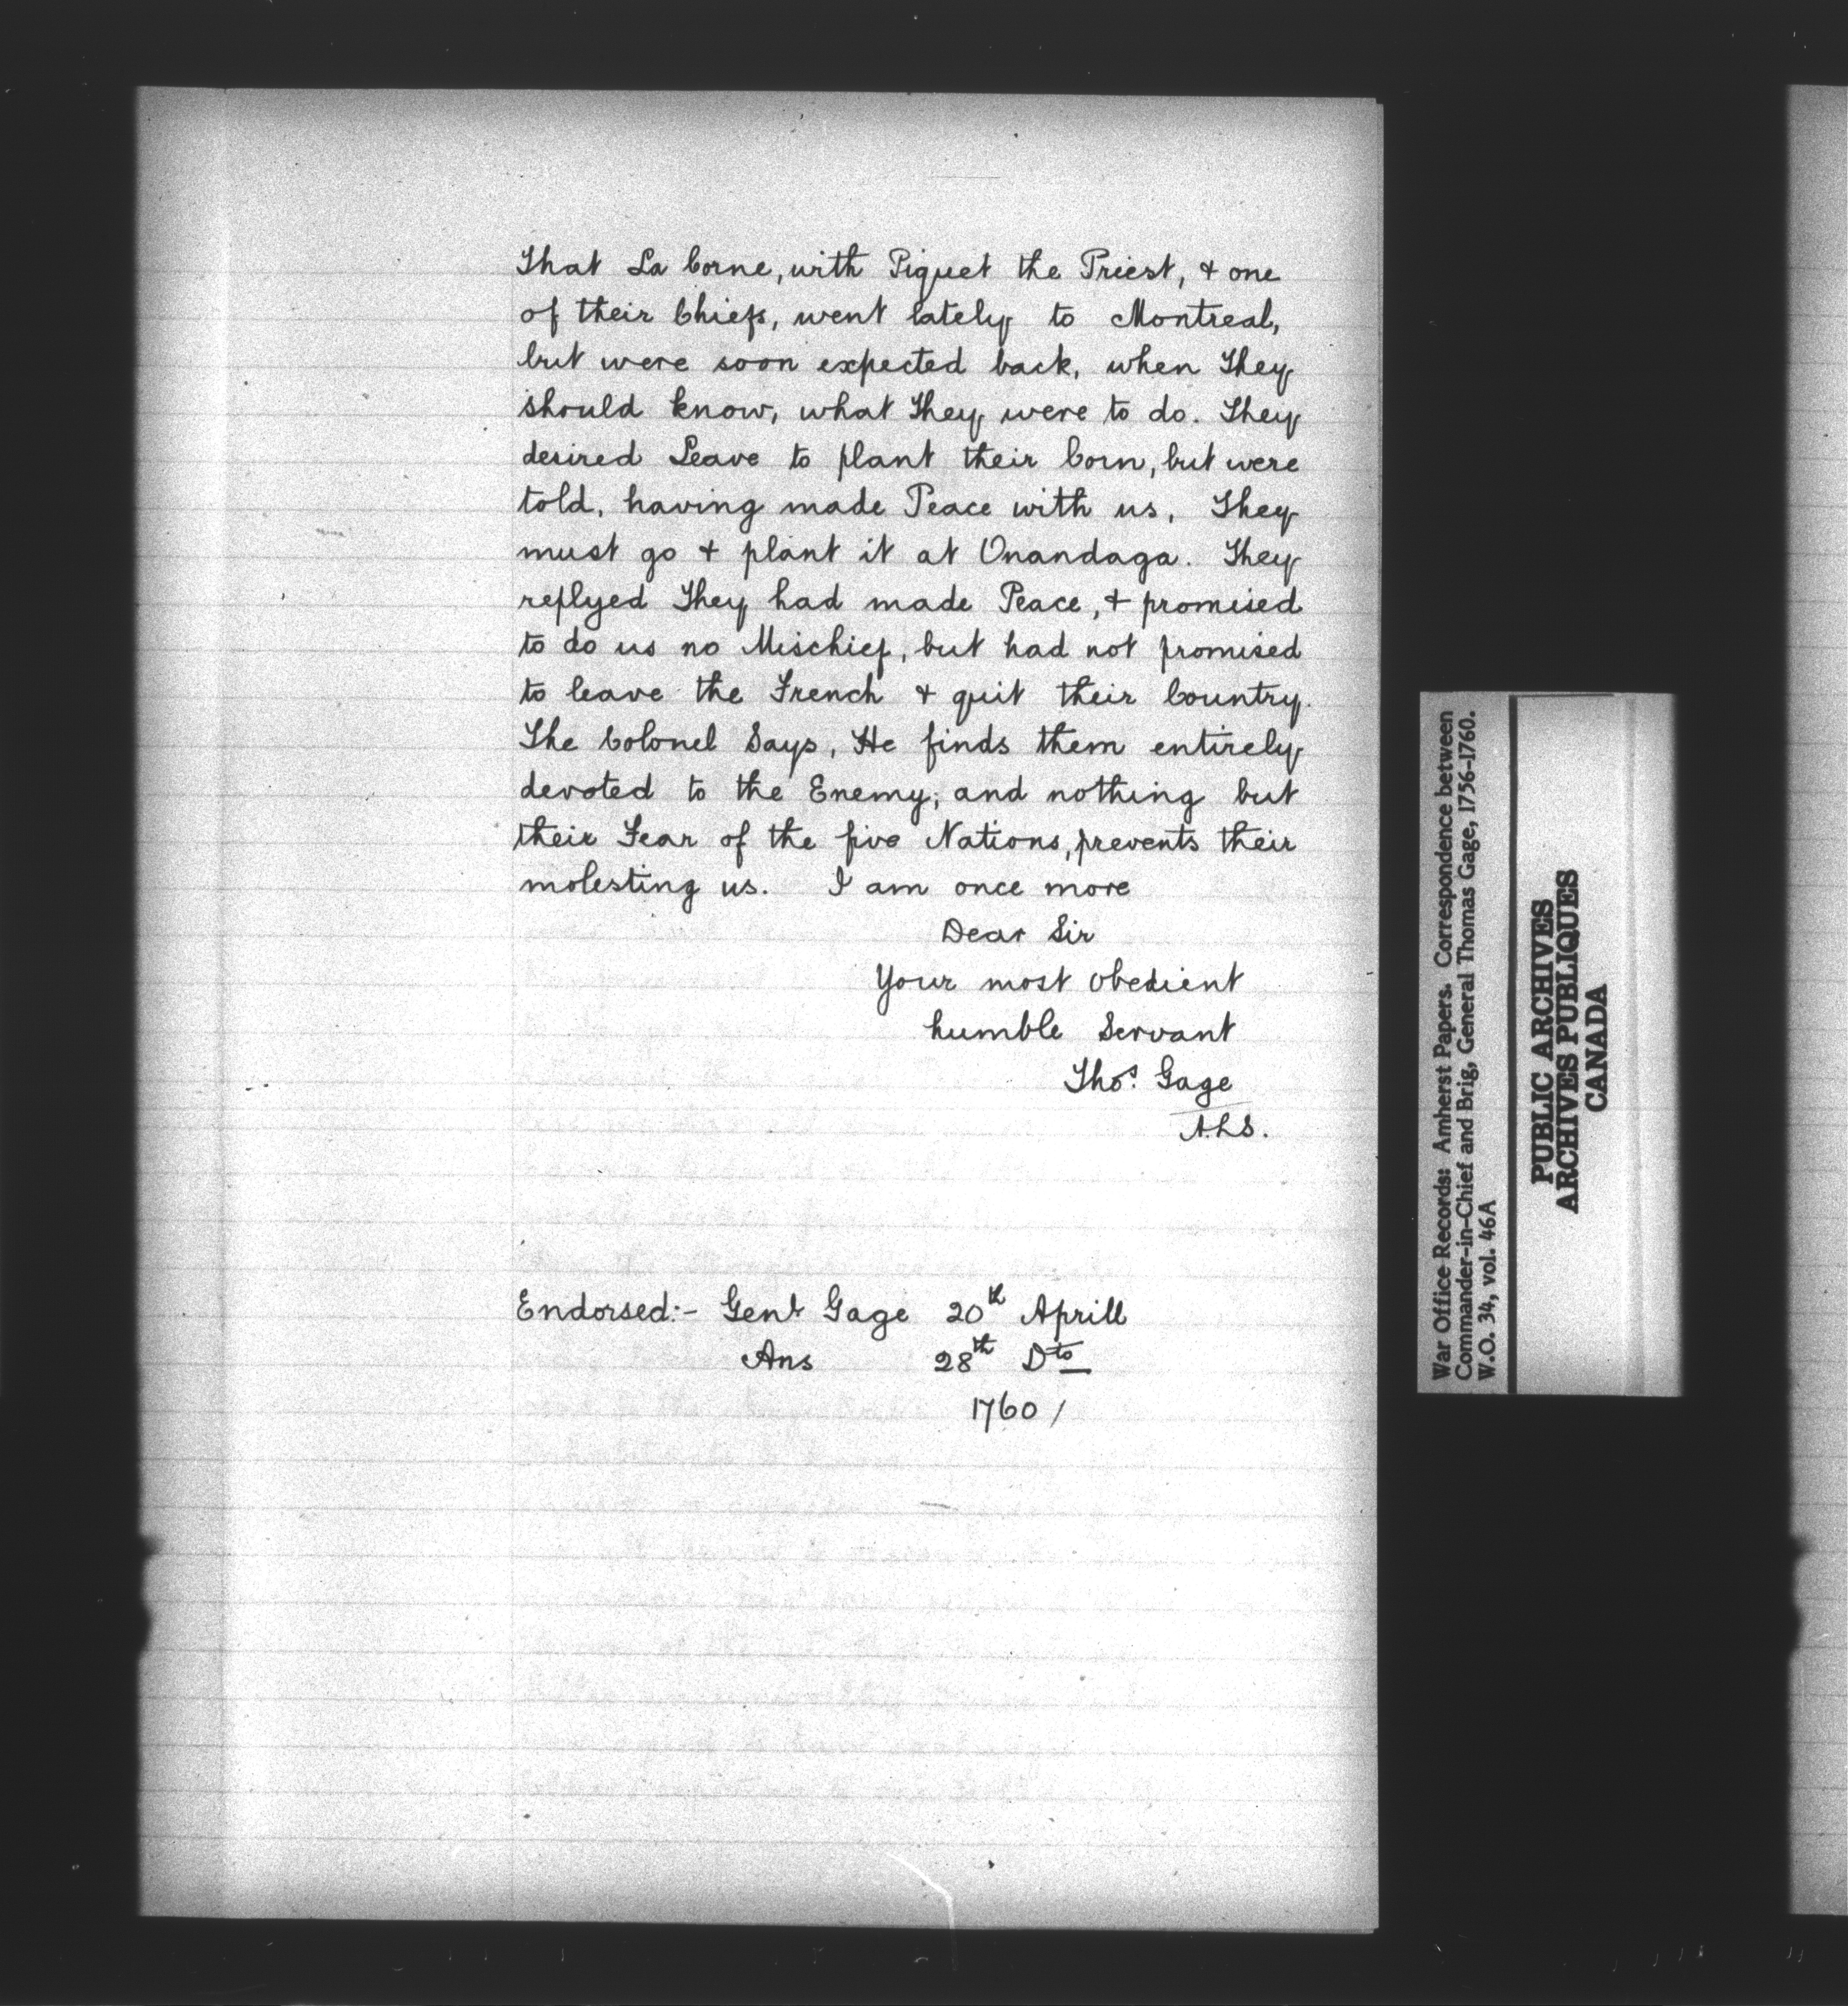 That La Corne, with Piquet the Priest, & one
of their Chiefs, went lately to Montreal,
but were soon expected back, when They
should know, what They were to do. They
desired Leave to plant their Corn, but were
told, having made Peace with us, They
must go & plant it at Onandaga. They
replyed They had made Peace, & promised
to do us no Mischief, but had not promised
to leave the French & quit their Country.
The Colonel Says, He finds them entirely
devoted to the Enemy; and nothing but
their Fear of the five Nations, prevents their
molesting us. I am once more
Dear Sir
Your most obedient
humble Servant
Thos. Gage
A.L.S.
Endorsed:- Genl Gage 20th Aprill
Ans 28th Dto
1760 /
War Office Records: Amherst Papers. Correspondence between
Commander-in-Chief and Brig, General Thomas Gage, 1756-1760.
W.O. 34, vol. 46A
PUBLIC ARCHIVES
ARCHIVES PUBLIQUES
CANADA